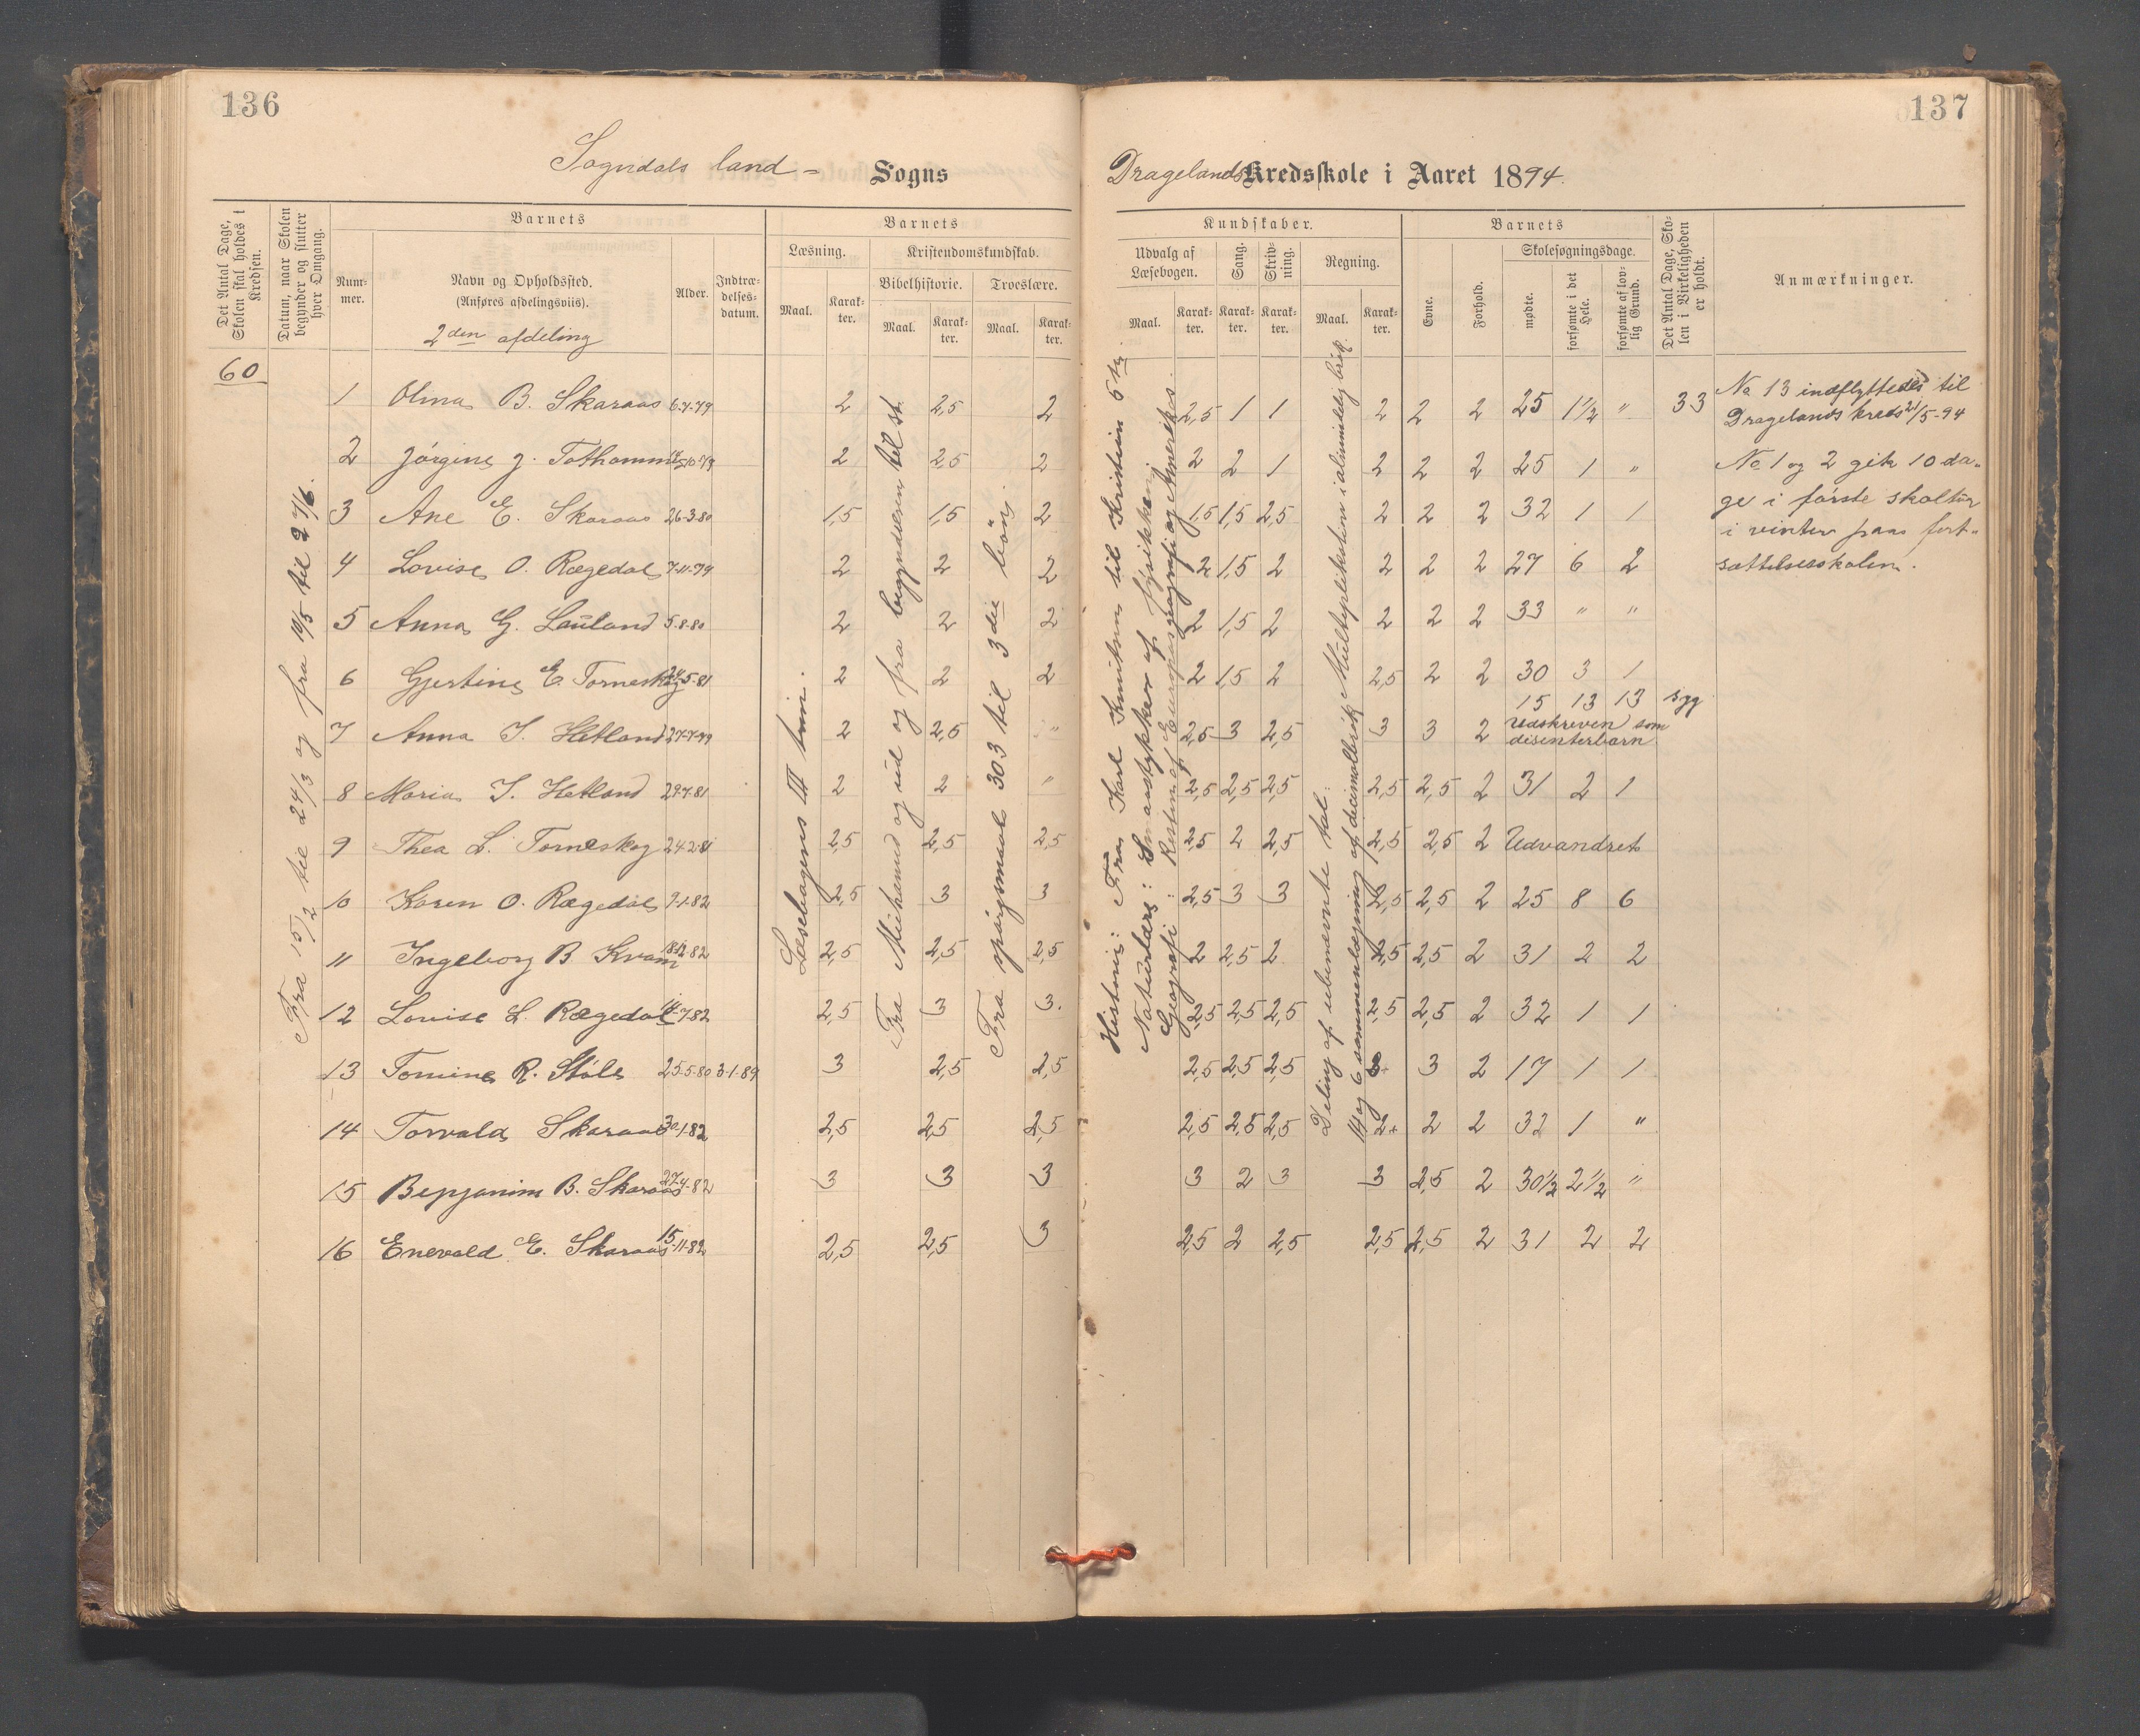 136
137
Sogndals land - Sogns
Dragelands Kredsskole i Aaret 1894.
Det Antal Dage, Skolen skal holdes i Kredsen.
Datum, naar Skolen begynder og slutter hver Omgang.
Barnets
Nummer.
Navn og Opholdssted.
(Anføres afdelingsviis).
2den afdeling
Alder.
Indtrædelsesdatum.
Barnets
Læsning.
Maal.
Karakter.
Kristendomskundskab.
Bibelhistorie.
Maal.
Karakter.
Troeslære.
Maal.
Karakter.
Kundskaber.
Udvalg af Læsebogen.
Maal.
Karakter.
Sang.
Karakter.
Skrivning.
Karakter.
Regning.
Maal.
Karakter.
Barnets
Evne.
Forhold.
Skolesøgningsdage.
mødte.
forsømte i det Hele.
forsømte af lovlig Grund.
Det Antal Dage, Skolen i Virkeligheden er holdt.
Anmærkninger.
60
Fra 15/2 til 24/3 og fra 19/5 til 27/6.
Læsebogens III trin.
Fra Mikanud og ud og fra begyndelsen til st.
Fra spørgsmaal 303 til 3die bøn.
Historie: Fra Karl Knutsen til Kristian 5te.
Naturlære: Smaastykker af fysikken
Geografi: Resten af Europas geografi og Amerikas.
Deling af ubenævnte tal.
Multiplikation i almindelig brøk.
14 og 6 sammenlægning af decimalbrøk
1 Olma B. Skaraas 6-7-79 2 2,5 2 2,5 1 1 2 2 2 25 1 1/2 " 33
2 Jørgine J. Tothammer 15-10-79 2 2,5 2 2 2 1 2 2 2 25 1 "
3 Ane E. Skaraas 26-3-80 1,5 1,5 2 1,5 1,5 2,5 2 2 2 32 1 1
4 Lovise O. Rægedal 7-11-79 2 2 2 2 1,5 2 2 2 2 27 6 2
5 Anna G. Lauland 5-8-80 2 2 2 2 1,5 2 2 2 2 33 " "
6 Gjertine E. Torneskog 24-5-81 2 2 2 2 1,5 2 2,5 2 2 30 3 1
15 13 13 syg
7 Anna T. Hetland 27-7-79 2 2,5 " 2,5 3 2,5 3 3 2 Udskreven som disenterbarn
8 Maria T. Hetland 29-7-81 2 2 " 2,5 2,5 2,5 2,5 2,5 2 31 2 1
9 Thea L. Torneskog 24-2-81 2,5 2,5 2,5 2,5 2 2,5 2,5 2,5 2 Udvandret
10 Karen O. Rægedal 9-1-82 2,5 3 3 2,5 3 3 2,5 2,5 2 25 8 6
11 Ingeborg B Kvam 18-12-82 2,5 2,5 2,5 2 2,5 2 2,5 2,5 2 31 2 2
12 Lovise L. Rægedal 14-7-82 2,5 3 3. 2,5 2,5 2,5 2,5 2,5 2 32 1 1
13 Tomine R. Støle 25-5-80 3-1-89 3 2,5 2,5 2,5 2,5 2,5 3+ 3 2 17 1 1
14 Torvald Skaraas 30-1-82 2,5 2,5 2,5 2,5 2,5 2,5 2+ 2 2 32 1 "
15 Benjamin B. Skaraas 27-4-82 3 3 3 3 2 3 3 2,5 2 30 1/2 2 1/2 "
16 Enevald E. Skaraas 15-11-82 2,5 2,5 3 2,5 2 2,5 2,5 2,5 2 31 2 2
No 13 indflyttedes til
Dragelands kreds 21/5-94
No 1 og 2 gik 10 da-
ge i første skoletur
i vinter paa fort-
sættelsesskolen.